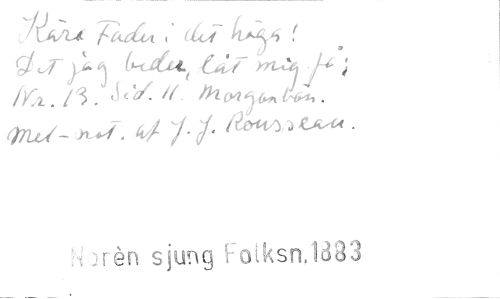 Kära Fader i det höga!
Det jag beder, låt mig få;
Nr. 13. Sid. 11. Morgonbön.
Mel-not. af J. J. Rousseau.
Norèn sjung Folksn. 1883